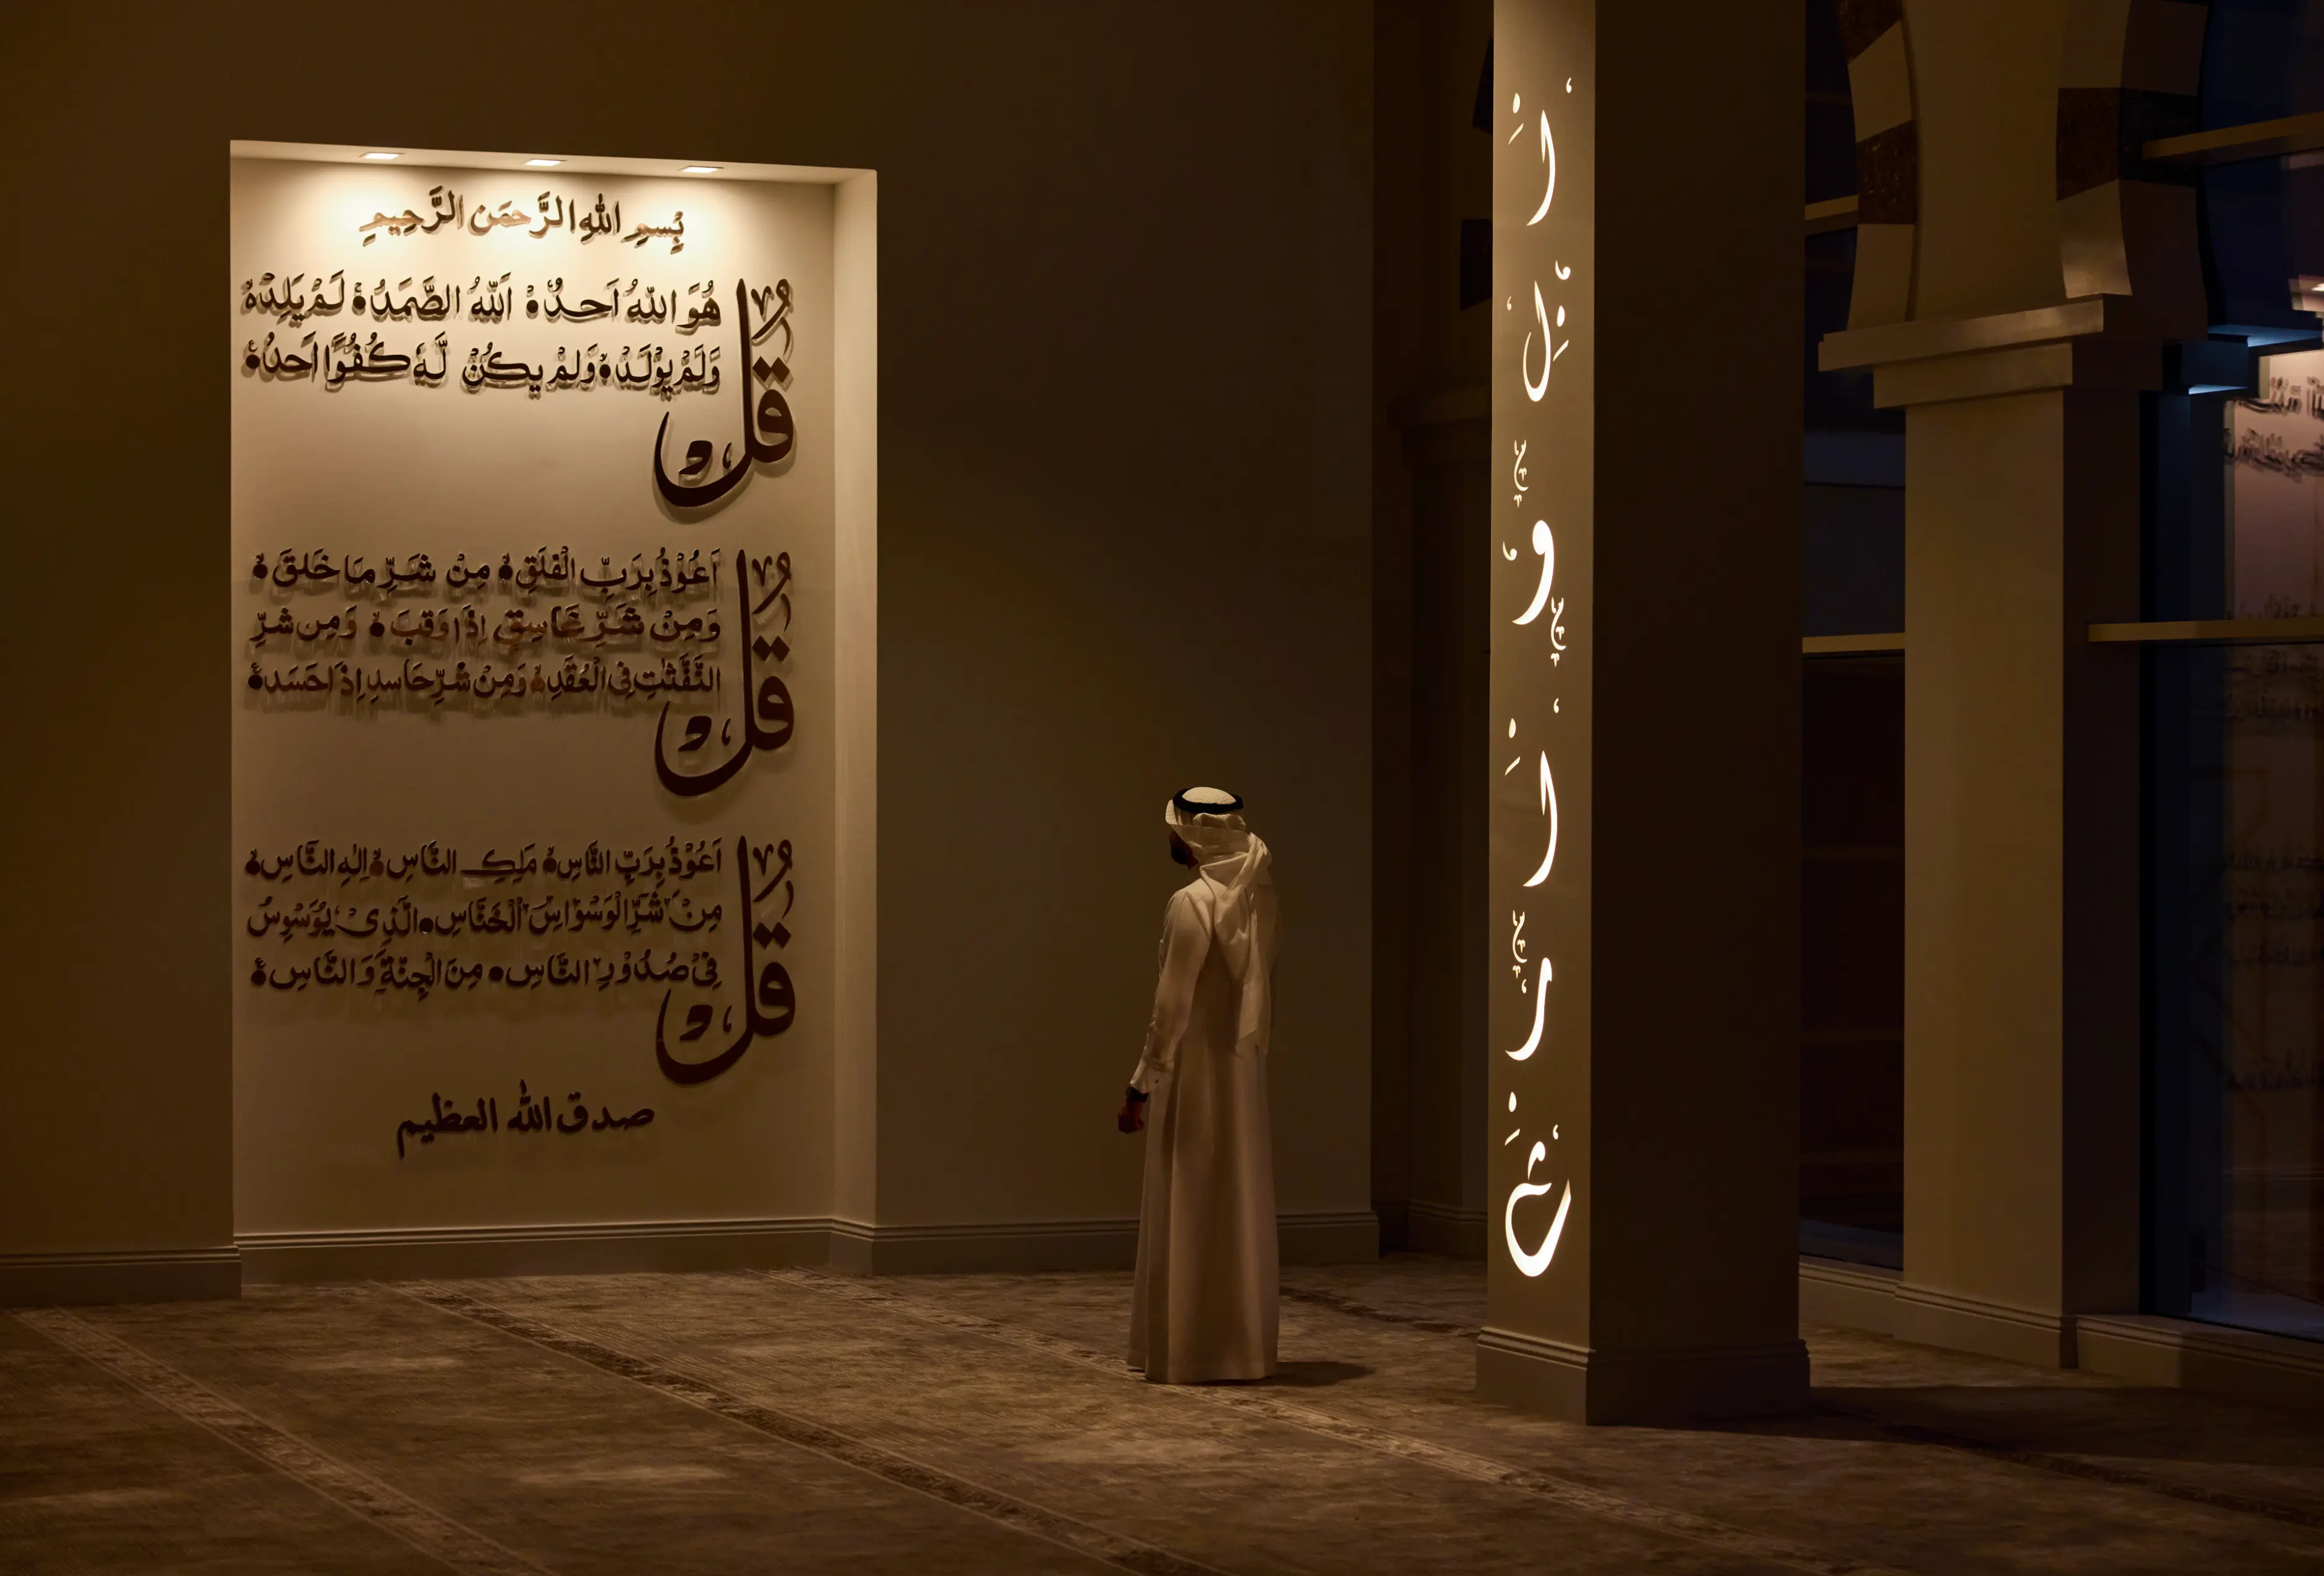 بِسمِ اللهِ الرَّحمَنِ الرَّحِيمِ
قُلْ هُوَ اللهُ اَحَدٌ ۚ اَللهُ الصَّمَدُ ۚ لَمْ يَلِدْ ۙ
وَلَمْ يُوْلَدْ ۙ وَلَمْ يَكُنْ لَّهٗ كُفُوًا اَحَدٌ ۚ
قُلْ اَعُوْذُ بِرَبِّ الْفَلَقِ ۙ مِنْ شَرِّ مَا خَلَقَ ۙ
وَمِنْ شَرِّ غَاسِقٍ اِذَا وَقَبَ ۙ وَمِن شَرِّ
النَّفّٰثٰتِ فِى الْعُقَدِ ۙ وَمِنْ شَرِّ حَاسِدٍ اِذَا حَسَدَ ۚ
قُلْ اَعُوْذُ بِرَبِّ النَّاسِ ۙ مَلِكِ النَّاسِ ۙ اِلٰهِ النَّاسِ ۙ
مِنْ شَرِّ الْوَسْوَاسِ الْخَنَّاسِ ۙ الَّذِىْ يُوَسْوِسُ
فِىْ صُدُوْرِ النَّاسِ ۙ مِنَ الْجِنَّةِ وَالنَّاسِ ۚ
صدق الله العظيم